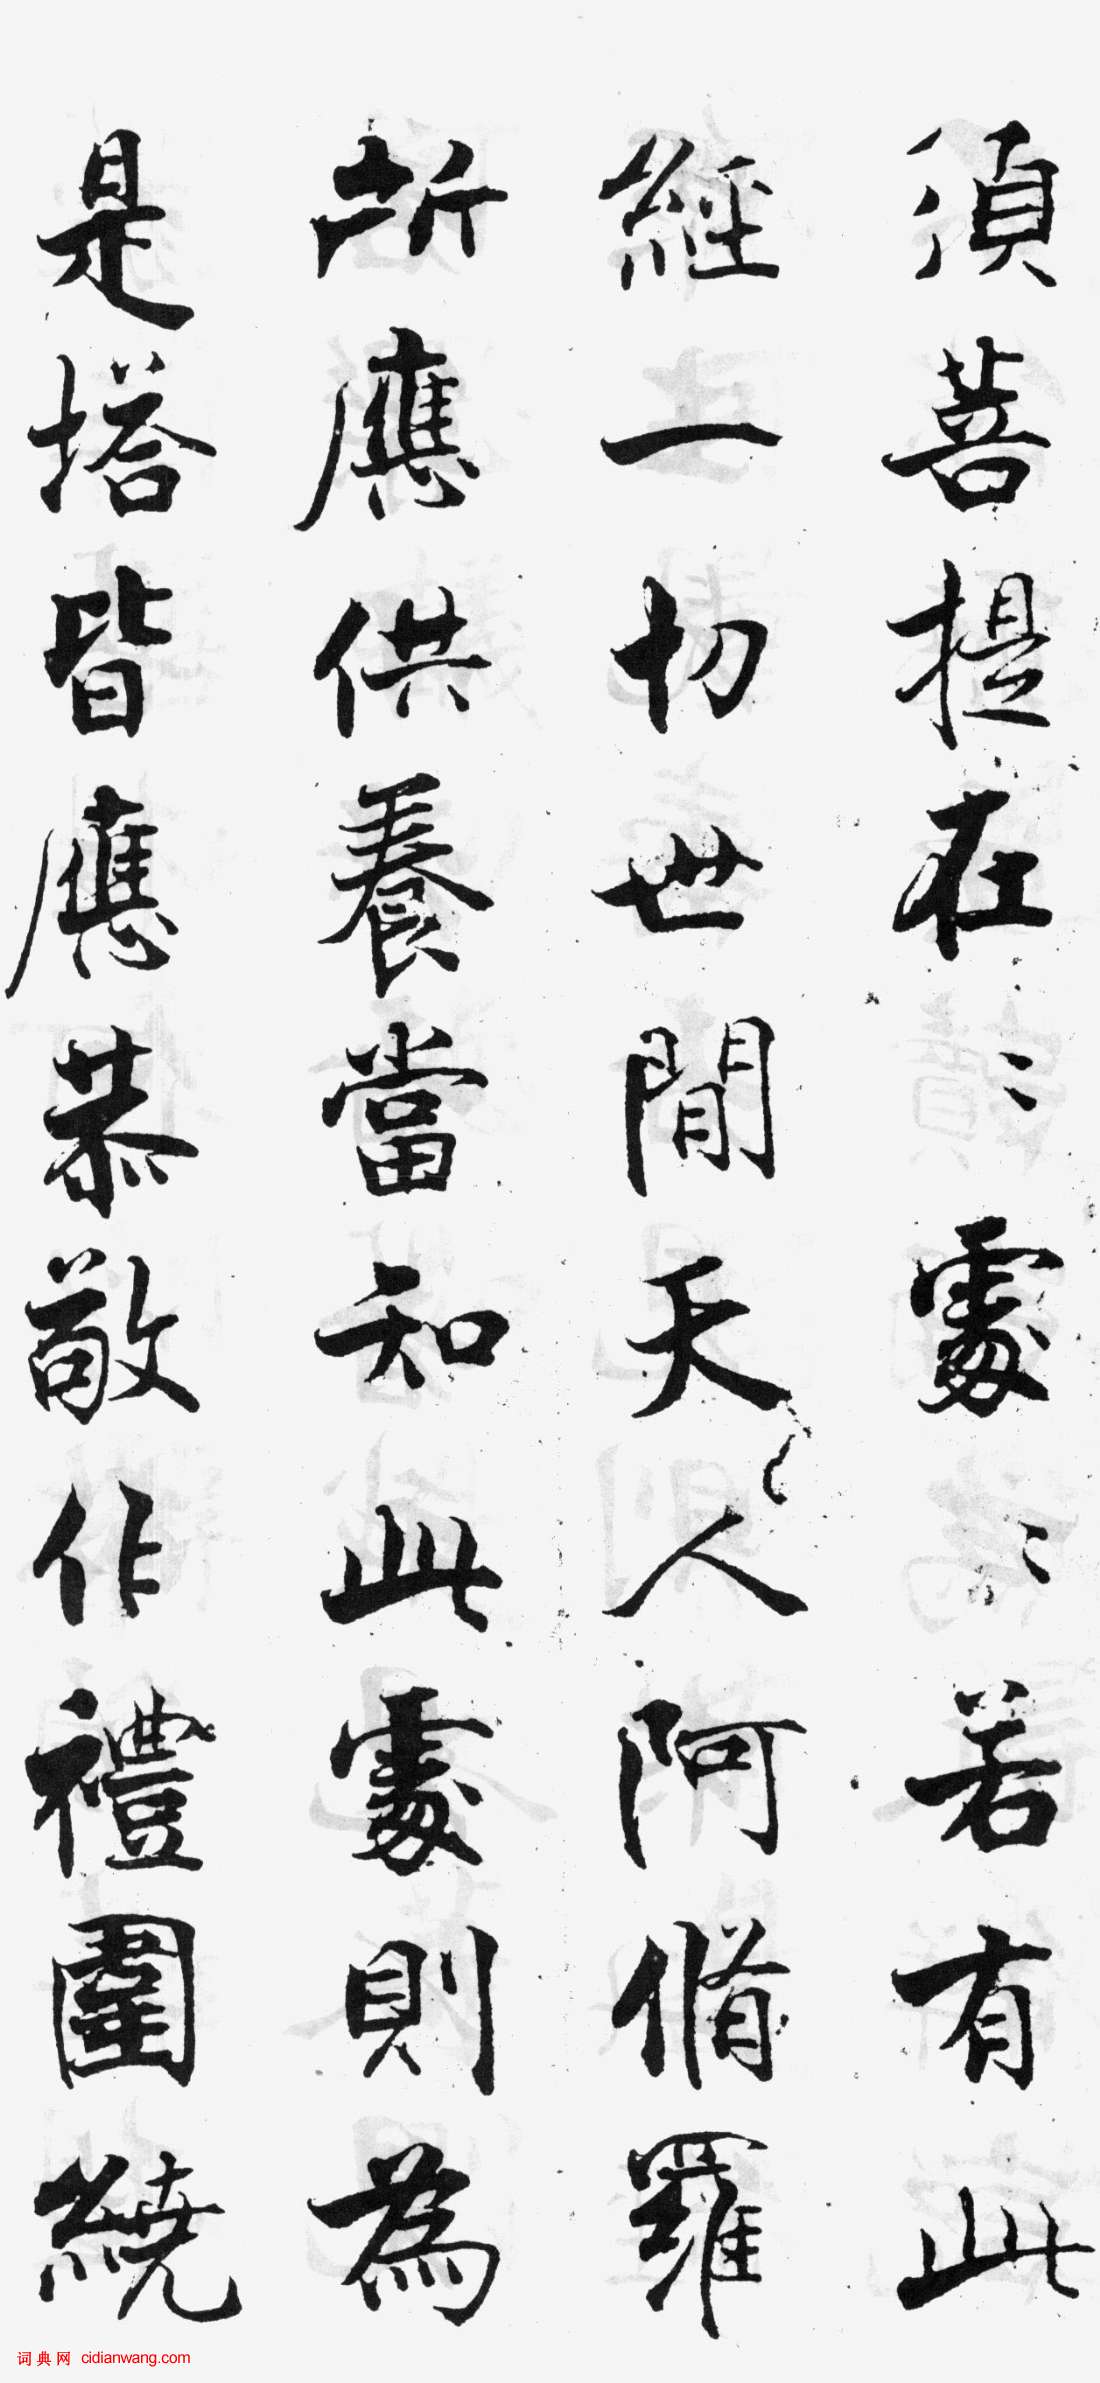 須菩提在々處々若有此
經一切世間天人阿脩羅
所應供養當知此處則為
是塔皆應恭敬作禮圍繞
词典网 cidianwang.com